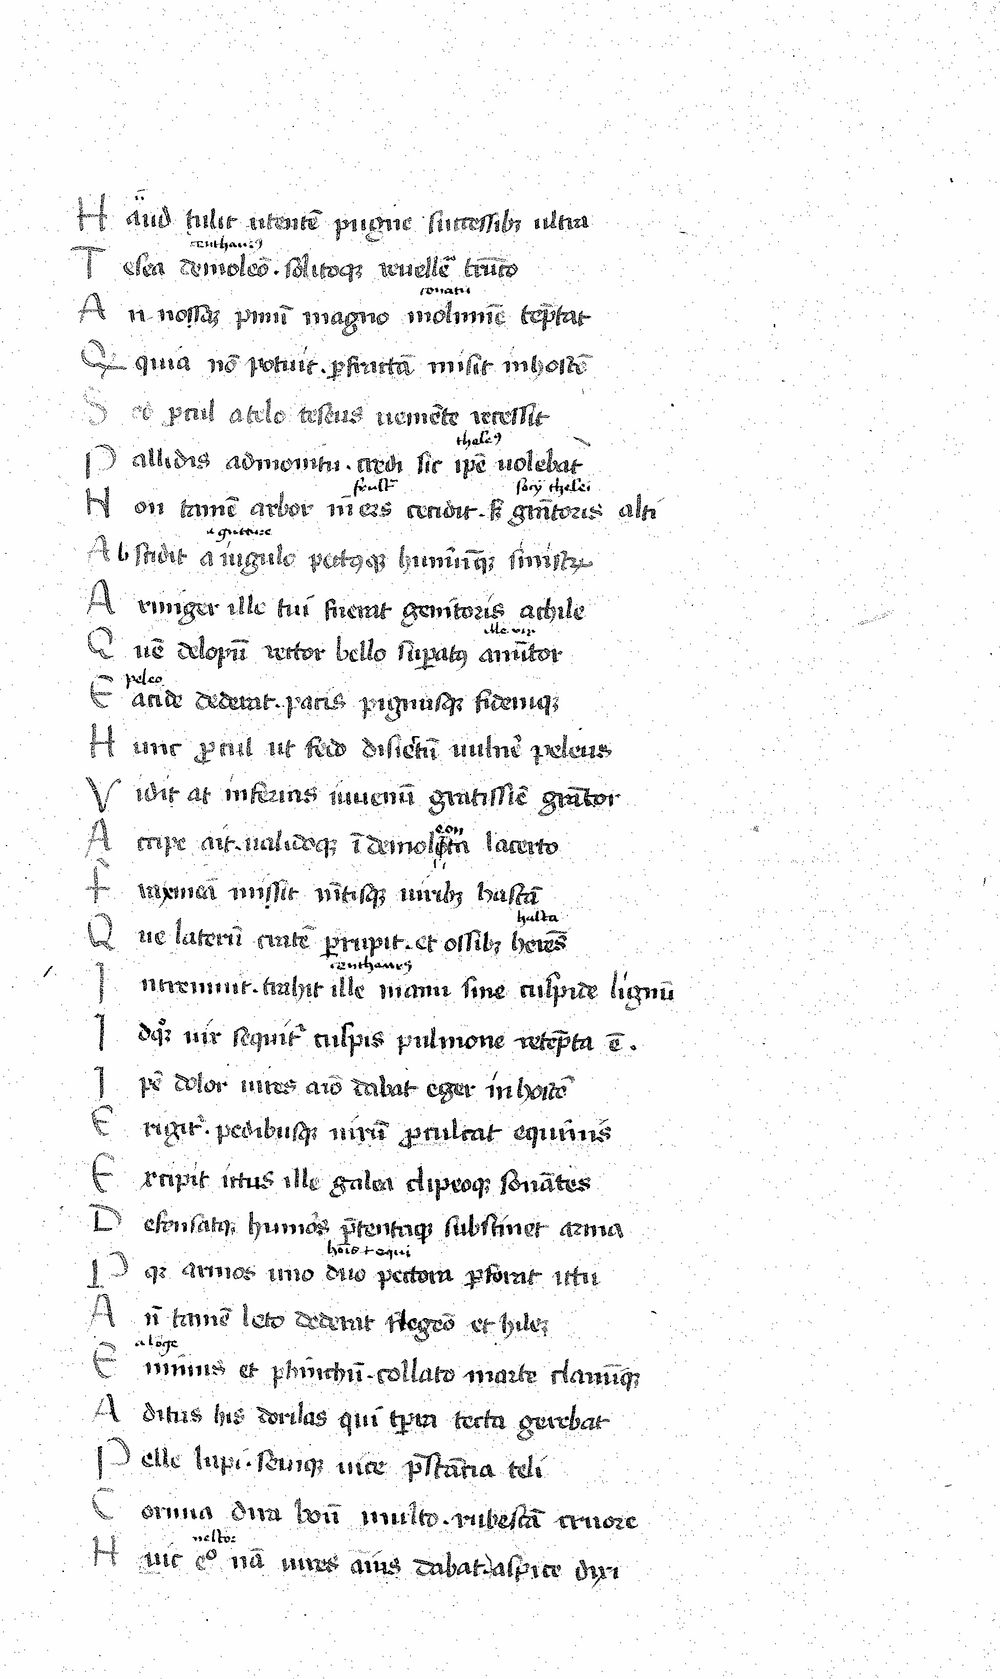 H aud tulit utentē pugne succeſſibꝫ ultra
centhaurꝰ
T esea demoleō . solitoqꝫ reuellē trūco
conatu
A n nossaꝫ pinū magno molimīe tēptat
Q quia nō potuit . ꝑfractā misit in hostē
S ed ꝓcul a telo teseus uemēte receſſit
theseꝰ
P allidis admonitu . credi sic ipē uolebat
frustᷓ sorij thesei
N on tamē arbor īners cecidit . ẜ grātoris alti
a guture
A bscidit a iugulo pectꝰqꝫ humūqꝫ sinistꝝ
A rmiger ille tui fuerat genitoris achile
ille vir
Q uē delopū rector bello suꝑatꝰ amītor
peleo
E acide dederat . pacis pignusqꝫ fidemqꝫ
H unc ꝓcul ut fedo disiectū uulnē peleus
V idit at inferias iuuenū gratiſſīe grātor
A ccipe ait . ualidoqꝫ ī demoleonta lacerto
eon
F raxineā miſſit mētisqꝫ uiribꝫ hastā
hasta
Q ue laterū cratē ꝑrupit . et oſſibꝫ herēs
centhaurꝰ
I ntremuit . trahit ille manu sine cuspide lignū
I dqꝫ uir sequitᷣ cuspis pulmone retēpta ē .
I pē dolor uires aīo dabat eger in hostē
E rigitᷣ . pedibusqꝫ uirū ꝓculcat equinis
E xcipit ictus ille galea clipeoqꝫ sonātes
D efensatqꝫ humōs p̄tentaqꝫ substinet arma
hōis ⁊ equi
P qꝫ armos uno duo pectora ꝑforat ictu
A n̄ tamē leto dederat flegeō et hileꝫ
a lōge
E minus et phinchū . collato marte clanīqꝫ
A ditus his dorilas qui tꝑra tecta gerebat
P elle lupi . seuiqꝫ uice p̄stātia teli
C ornua dira boū multo . rubefctā cruore
nestor
H uic eͦ nā uires aīus dabat . aspice dixi